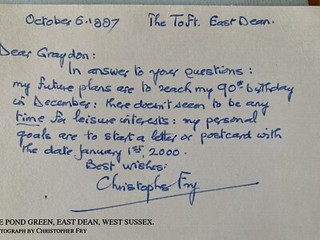 October 6.1997 The Toft. East Dean.
Dear Graydon:
In answer to your questions:
my future plans are to reach my 90th birthday
in December: there doesn't seem to be any
time for leisure interests: my personal
goals are to start a letter or postcard with
the date January 1st, 2000.
Best wishes:
Christopher Fry
E POND GREEN, EAST DEAN, WEST SUSSEX.
OTOGRAPH BY CHRISTOPHER FRY